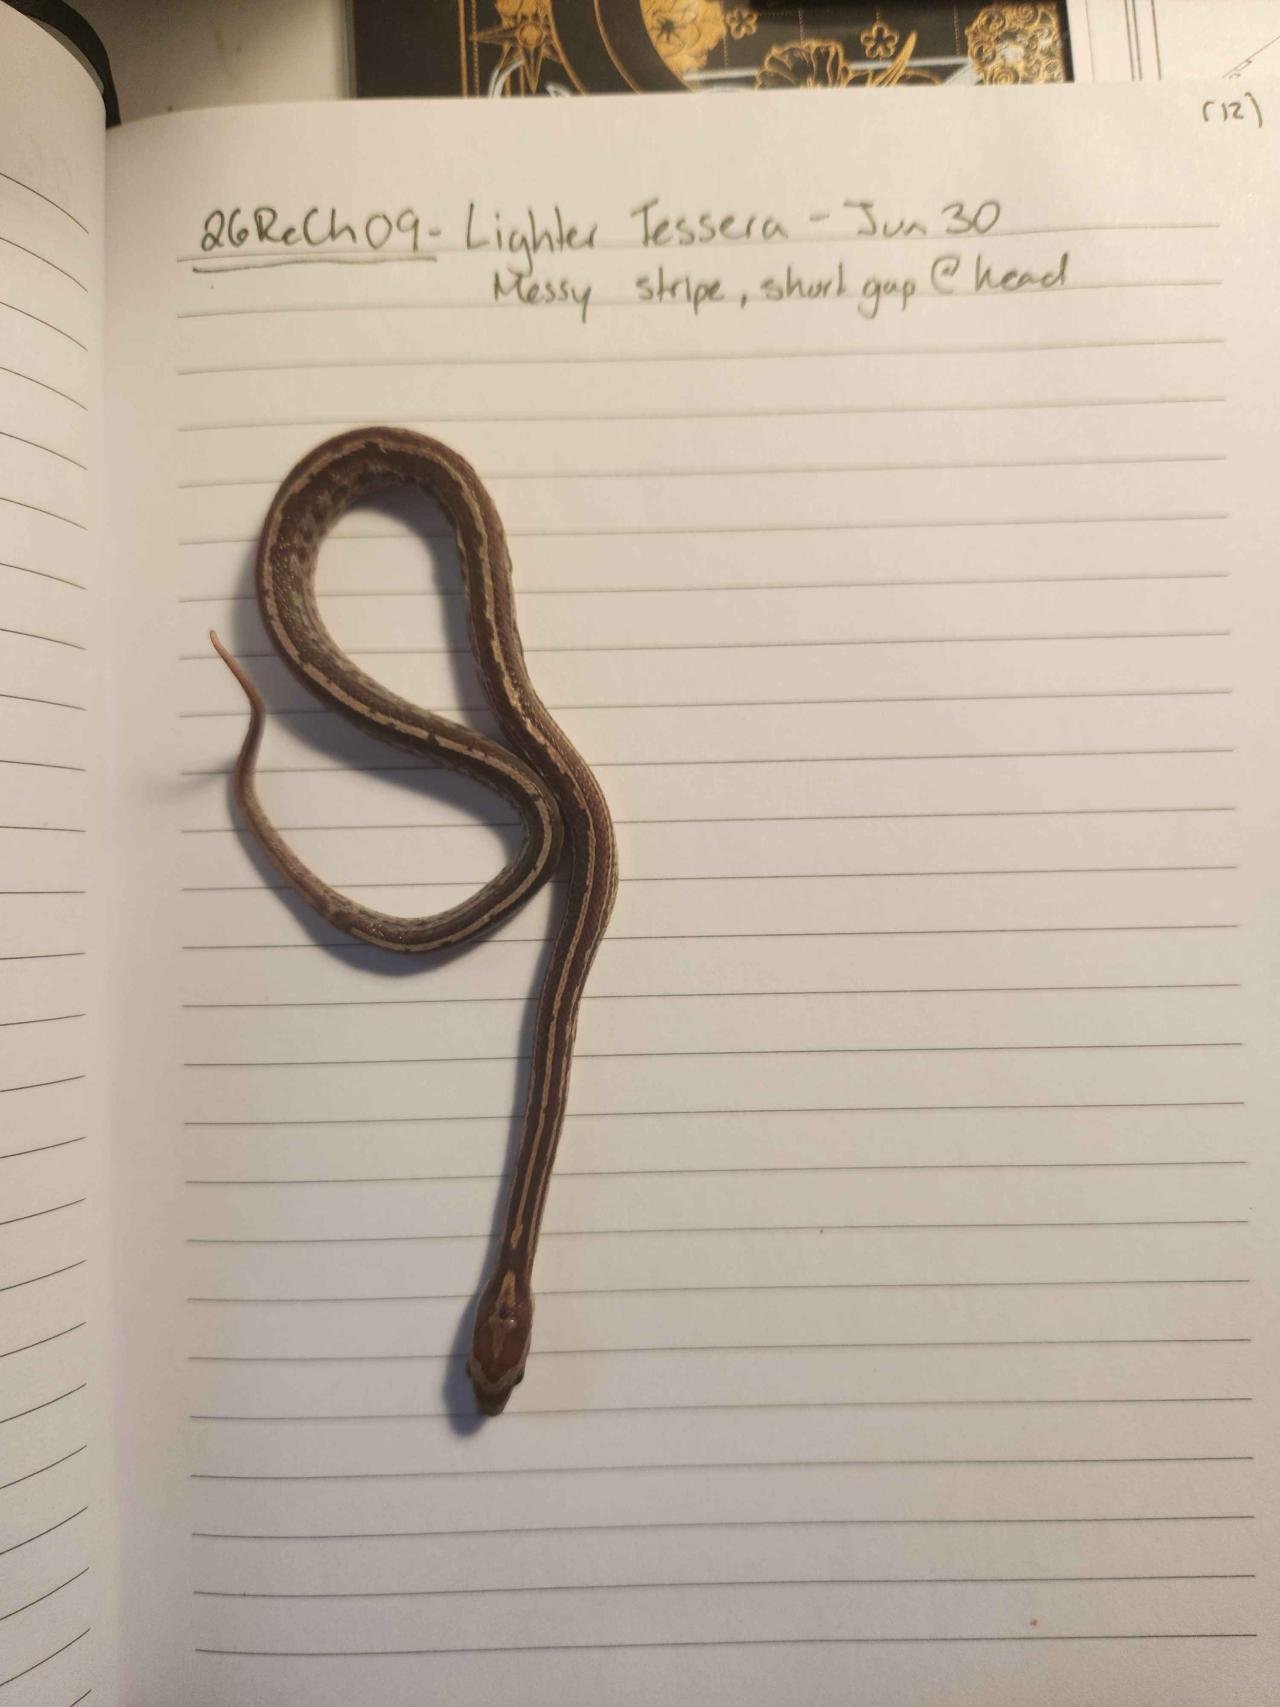 (12)
26ReCh09- Lighter Tessera - Jun 30
Messy stripe, short gap @ head